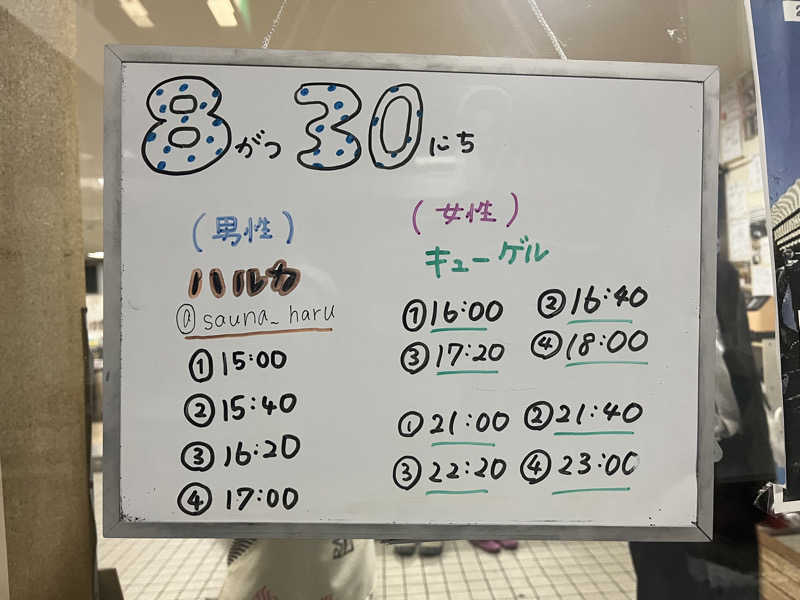 8がつ30にち
(男性)
ハルカ
@sauna_haru
①15:00
②15:40
③16:20
④17:00
(女性)
キューゲル
①16:00 ②16:40
③17:20 ④18:00
①21:00 ②21:40
③22:20 ④23:00